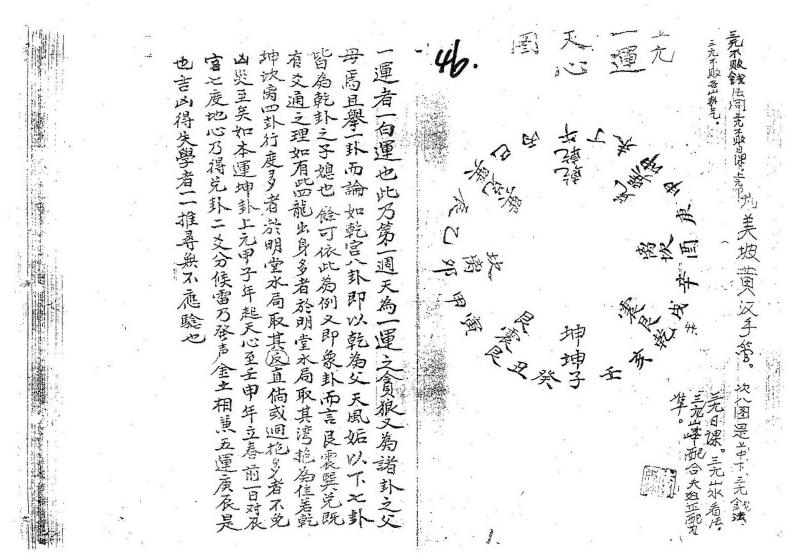 三元不敗錢法同三元不敗日課上元
三元不敗
美坡黄汉手筆。次八图是上中下三元錢法
三元日課。三元山水看法。
三元山峰配合
準。
上元
一運
天心
图
46.
丙午丁未
申
庚酉辛戌
乾亥壬
坤坤子
癸丑艮
寅甲卯乙辰
巽巳
乾乾
坎离
震艮
艮震
离坎
一運者一白運也此乃第一週天為一運之貪狼又為諸卦之父
母焉且舉一卦而論如乾宮八卦即以乾為父天風姤以下七卦
皆為乾卦之子媳也餘可依此為例又即象卦而言艮震巽兌既
有爻通之理如有此四龍出身多者於明堂水局取其湾抱為佳若乾
坤坎离四卦行度多者於明堂水局取其反直倘或廻抱多者不免
凶災至矣如本運坤卦上元甲子年起天心至壬申年立春前一日对辰
宮七度地心乃得兌卦二爻分候雷乃發声金土相兼五運庚辰是
也吉凶得失學者一一推尋無不應驗也
1.